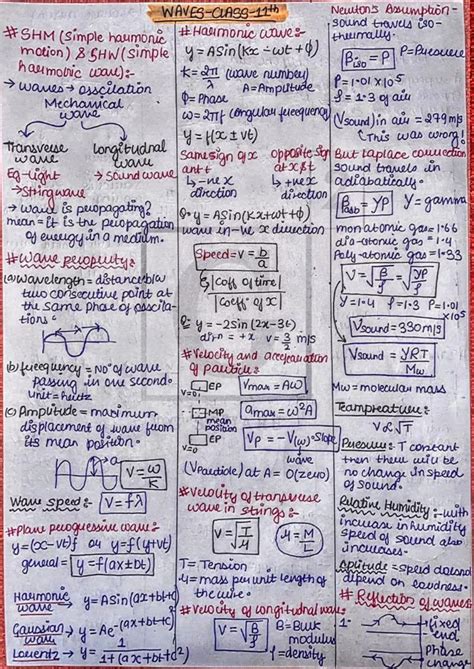 WAVES-CLASS-11th
# SHM (Simple haumonic
motion) & SHW (Simple
haumonic wave):-
→ waves → osscilation
Mechanical
wave
Transverse wave
longitudnal wave
Eg - light
→ String wave
→ Sound wave
→ wave is peopagating?
mean = it is the peopagation
of energy in a medium.
# Wave peoperity:-
(a) Wavelength = distance b/w
two consecutive point at
the same phase of osscila-
tions.
(b) frequency = No° of wave
passing in one second.
unit = hertz
(c) Amplitude = maximum
displacement of wave from
its mean position.
a
V = ω/K
Wave speed:- V = fλ
# Plan peogressive wave:-
y = (x-vt)f or y = f(y+vt)
general = y = f(ax+bt)
Haumonic wave → y = ASin(ax+bt+c)
Gaussian wave → y = Ae^-(ax+bt+c)²
Lorentz → y = 1/1+(ax+bt+c)²
# Haumonic wave:-
y = ASin(Kx - ωt + ϕ)
K = 2π/λ (wave number)
ϕ = Phase A = Amplitude
ω = 2πf (angular frequency)
y = f(x ± vt)
Same sign of x and t
↳ -ve x direction
opposite sign at x & t
↳ +ve x direction
y = ASin(Kx+ωt+ϕ)
wave in -ve x direction
Speed = V = b/a
|Coff of time|
|Coeff° of x|
y = -2Sin(2x-3t)
dirn = +x V = 3/2 m/s
# Velocity and acceleration
of particle:-
EP
V=0
MP
mean
position
EP
V=0
Vmax = Aω
amax = ω²A
VP = -V(ω)·Slope
wave
(Vparticle) at A = 0 (zero)
# Velocity of transverse
wave in strings:-
V = √T/μ
μ = M/L
T = Tension
μ = mass per unit length of
the wire.
# Velocity of longitudnal wave:
V = √B/ρ
B = Bulk
modulus
ρ = density
Newton's Assumption -
Sound travels iso-
thermally.
βiso = P
P = Pressure
P = 1.01 × 10⁵
ρ = 1.3 of air
(Vsound) in air = 279 m/s
(This was wrong!
But laplace connection
Sound travels in
adiabatically.
βadb = γP
γ = gamma
mon atomic gas = 1.66
dia-atomic gas = 1.4
Poly-atomic gas = 1.33
V = √β/ρ = √γP/ρ
γ = 1.4 ρ = 1.3 P = 1.01 ×10⁵
Vsound = 330 m/s
Vsound = γRT/Mw
Mw = molecular mass
Teampreature:-
V ∝ √T
Pressure: T constant
then there will be
no change in speed
of sound.
Relative Humidity:- with
increase in humidity
speed of sound also
increases.
Aplitude = speed doesnd
depend on loudness.
# Reflection of waves
1.
fixed
end
Phase